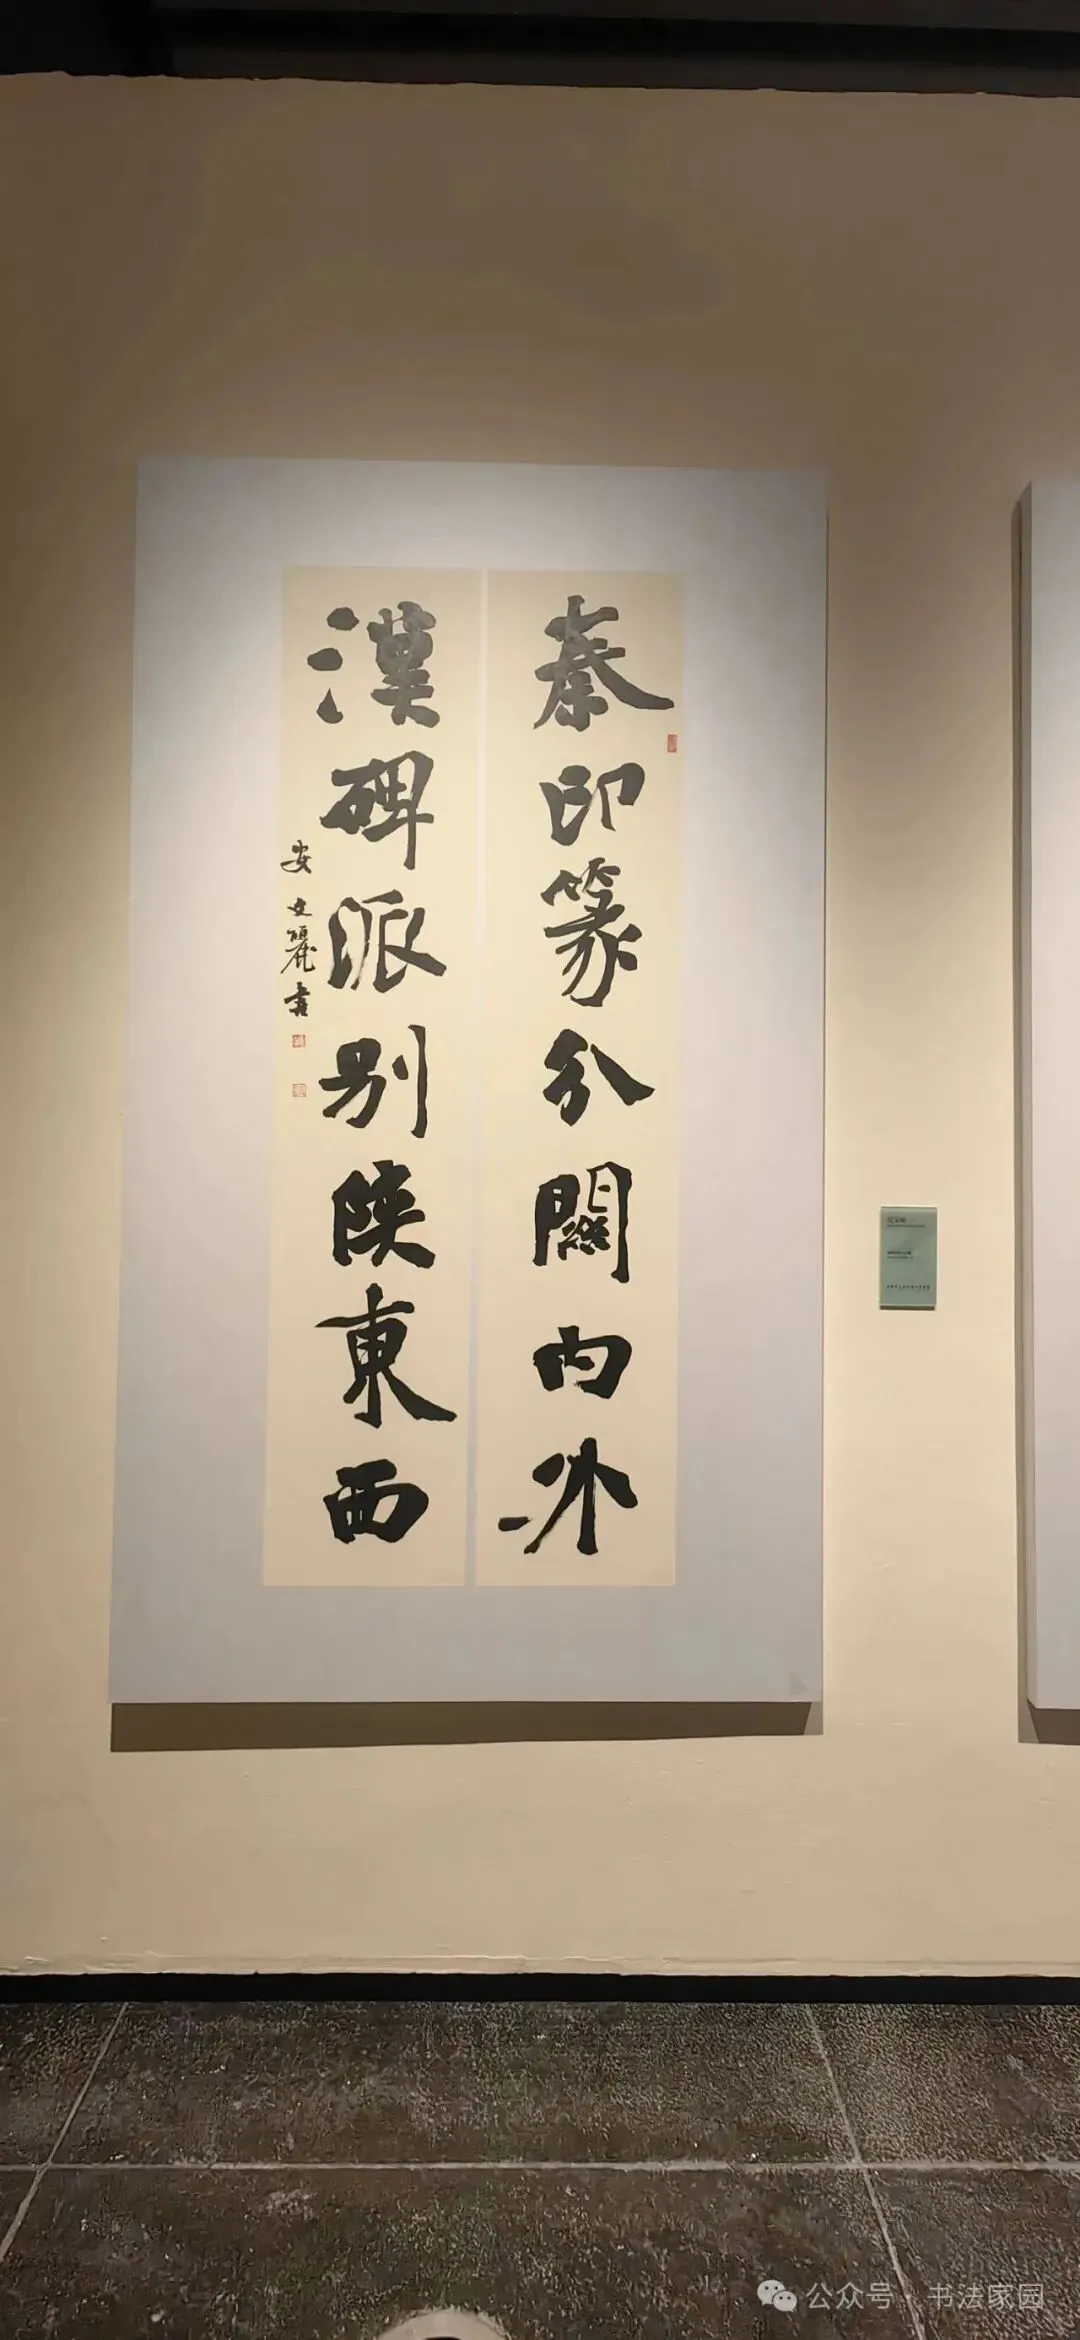 秦印篆分關內外
漢碑派别陝東西
安文麗書
公众号·书法家园